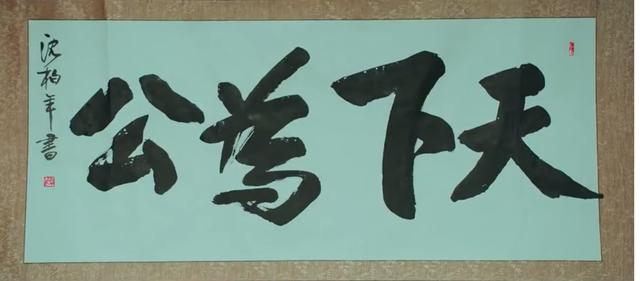 天下為公
沈柏年書